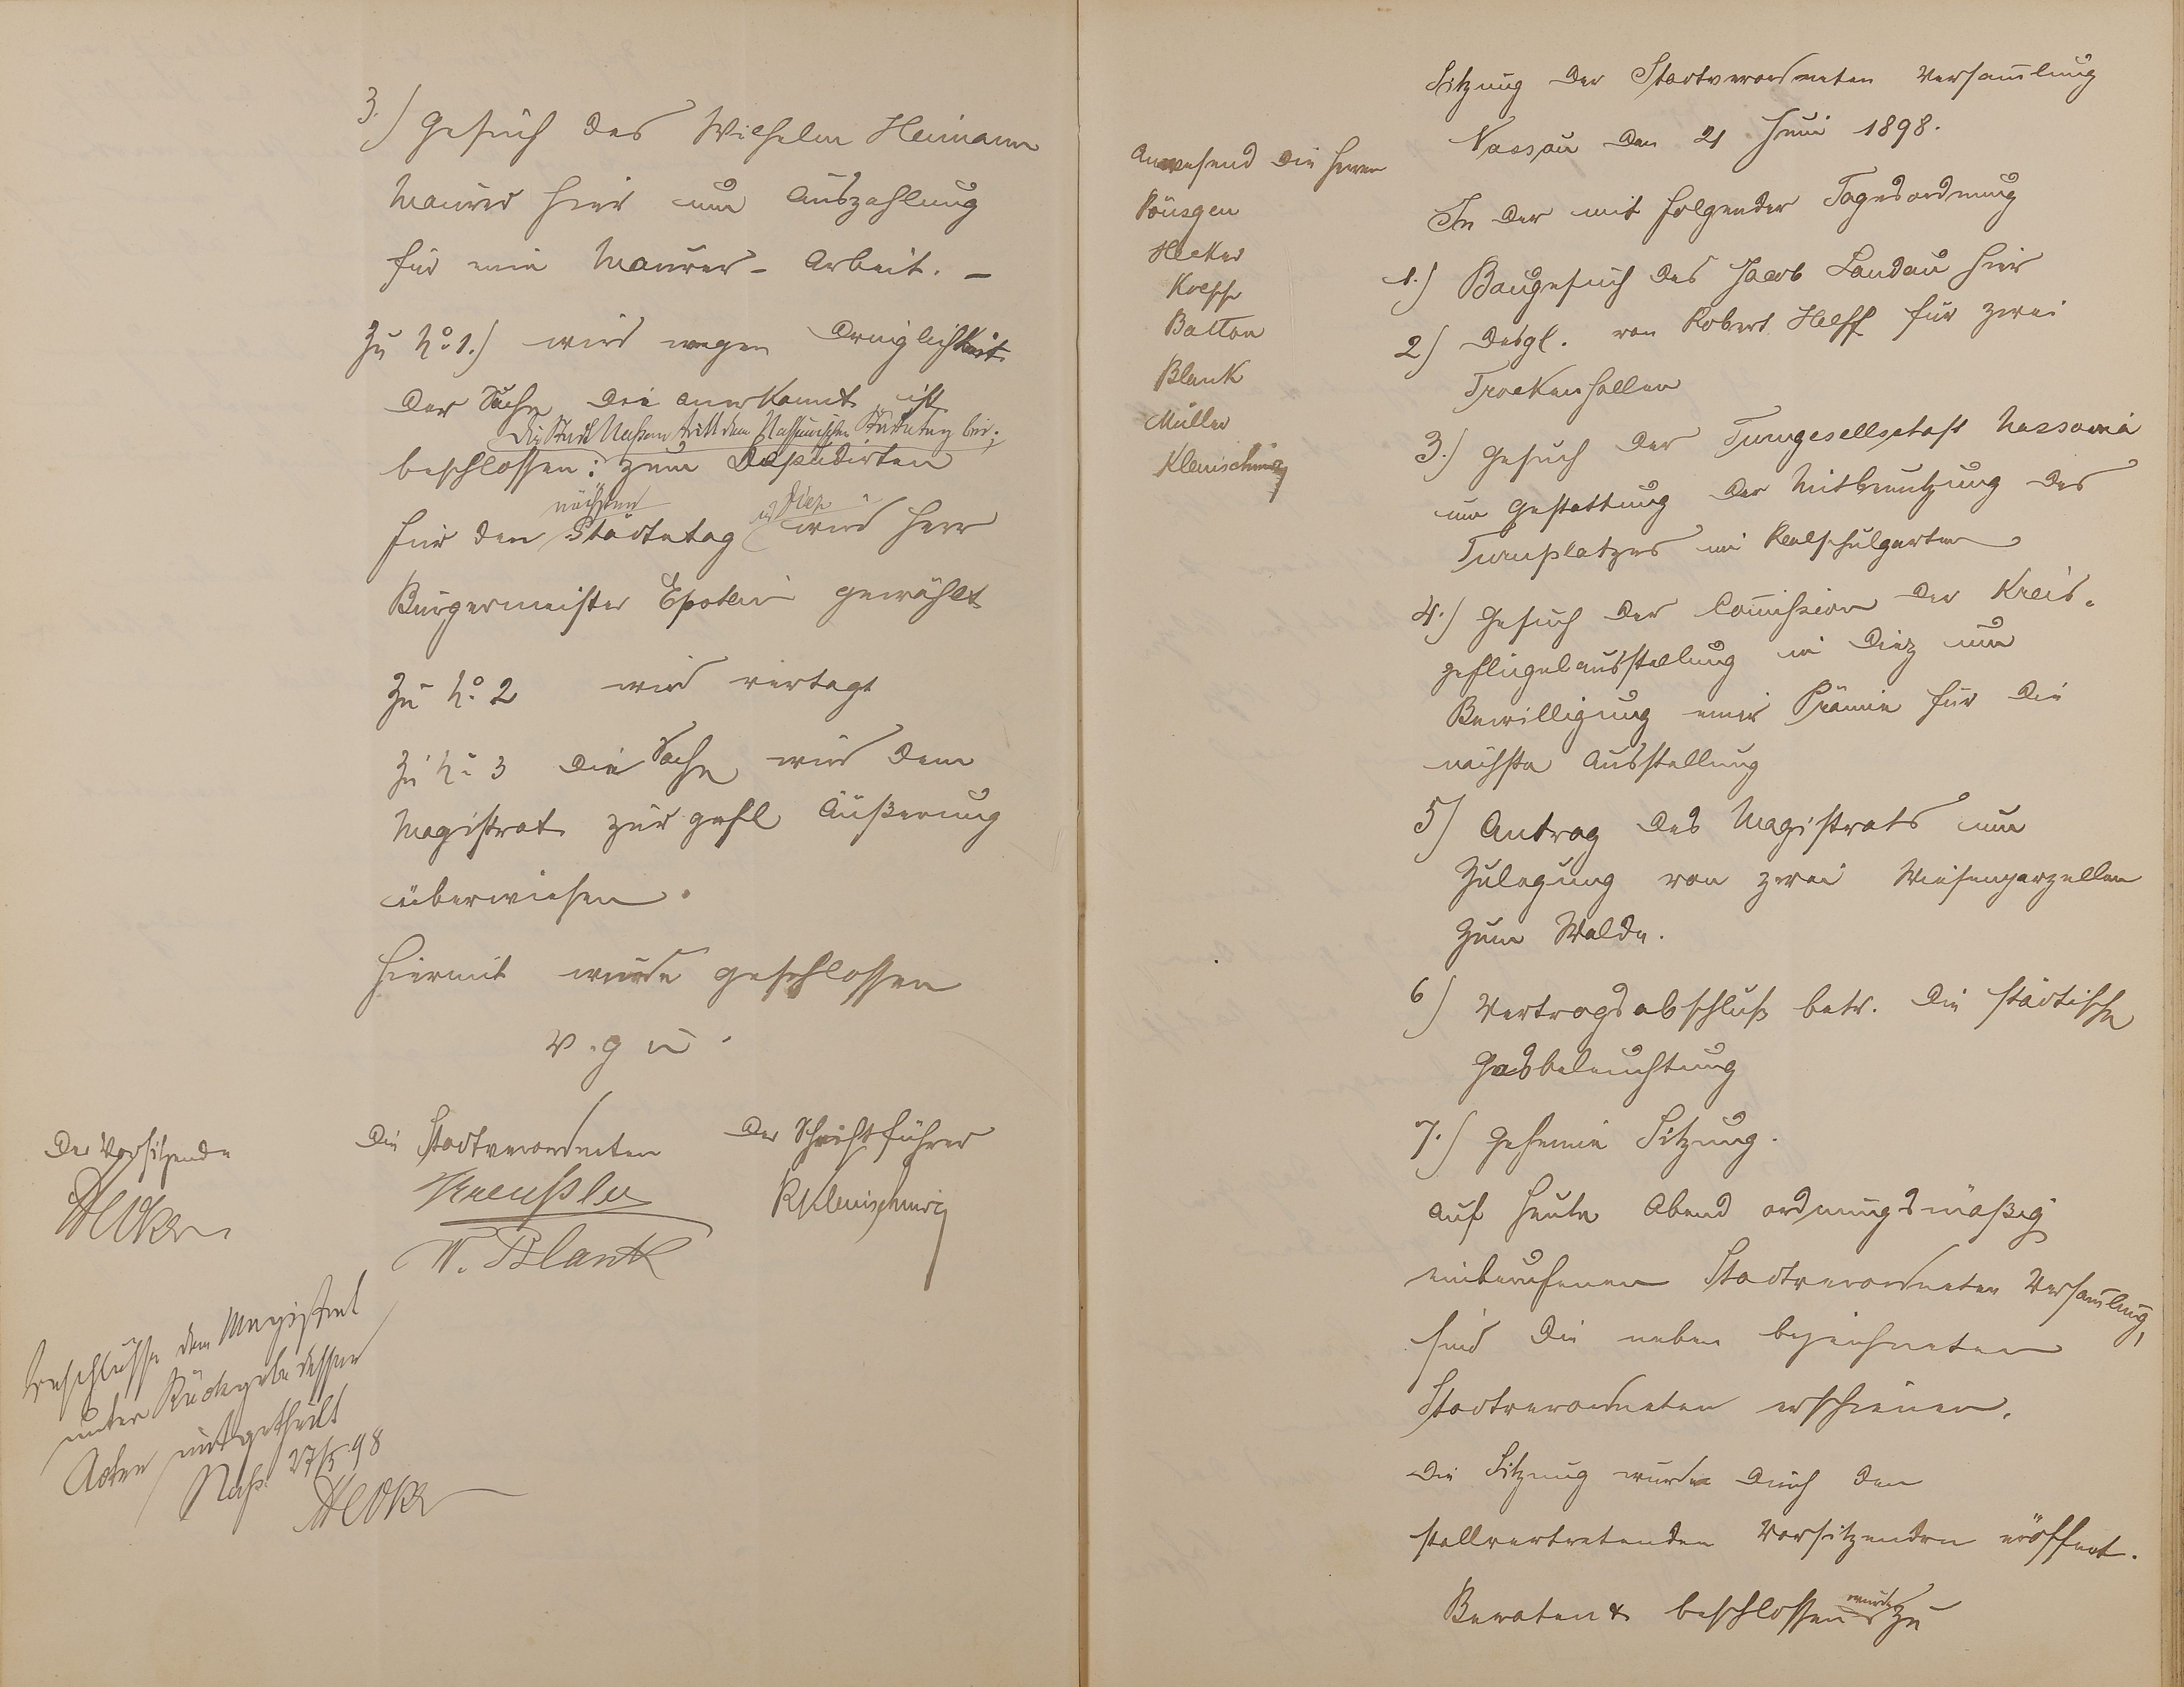 3.) Gesuch des Wilhelm Heimann
Maurer hier um Auszahlung
für eine Maurer-Arbeit. –
Zu No 1.) wird wegen Dringlichkeit
der Sache die anerkannt ist
Die Stadt Nassau tritt dem Nassauischen Städtetag bei;
beschlossen: zum Deputirten
nächsten
für den Städtetag in Diez wird Herr
Bürgermeister Epstein gewählt
Zu No 2 wird vertagt
Zu No 3 die Sache wird dem
Magistrat zur gefl Äußerung
überwiesen.
Hiermit wurde geschlossen
v. g u.
Der Vorsitzende
Die Stadtverordneten
Der Schriftführer
Hecker
Kreußler
W. Blank
R Kleinschmidt
Beschlüsse dem Magistrat
unter Rückgabe dessen
Acten mitgetheilt
Nass. 27/5 98
Hecker
Sitzung der Stadtverordneten Versam̄lung
Nassau den 21 Juni 1898.
Anwesend die Herren
Pöusgen
Hecker
Koepp
Balton
Blank
Müller
Kleinschmidt
In der mit folgender Tagesordnung
1.) Baugesuch des Jacob Landau hier
2) Desgl. von Robert Helff für zwei
Trockenhallen
3.) Gesuch der Turngesellschaft Nassovia
um Gestattung der Mitbenutzung des
Turnplatzes im Realschulgarten
4.) Gesuch der Com̄ission der Kreis-
geflügelausstellung in Diez um
Bewilligung einer Prämie für die
nächste Ausstellung
5) Antrag des Magistrats um
Zulegung von zwei Wiesenparzellen
zum Walde.
6) Vertragsabschluß betr. die städtische
Gasbeleuchtung
7.) Geheime Sitzung.
auf heute Abend ordnungsmäßig
einberufenen Stadtverordneten Versam̄lung,
sind die neben bezeichneten
Stadtverordneten erschienen.
Die Sitzung wurde durch den
stellvertretenden Vorsitzenden eröffnet.
Beraten & beschlossen wurde zu